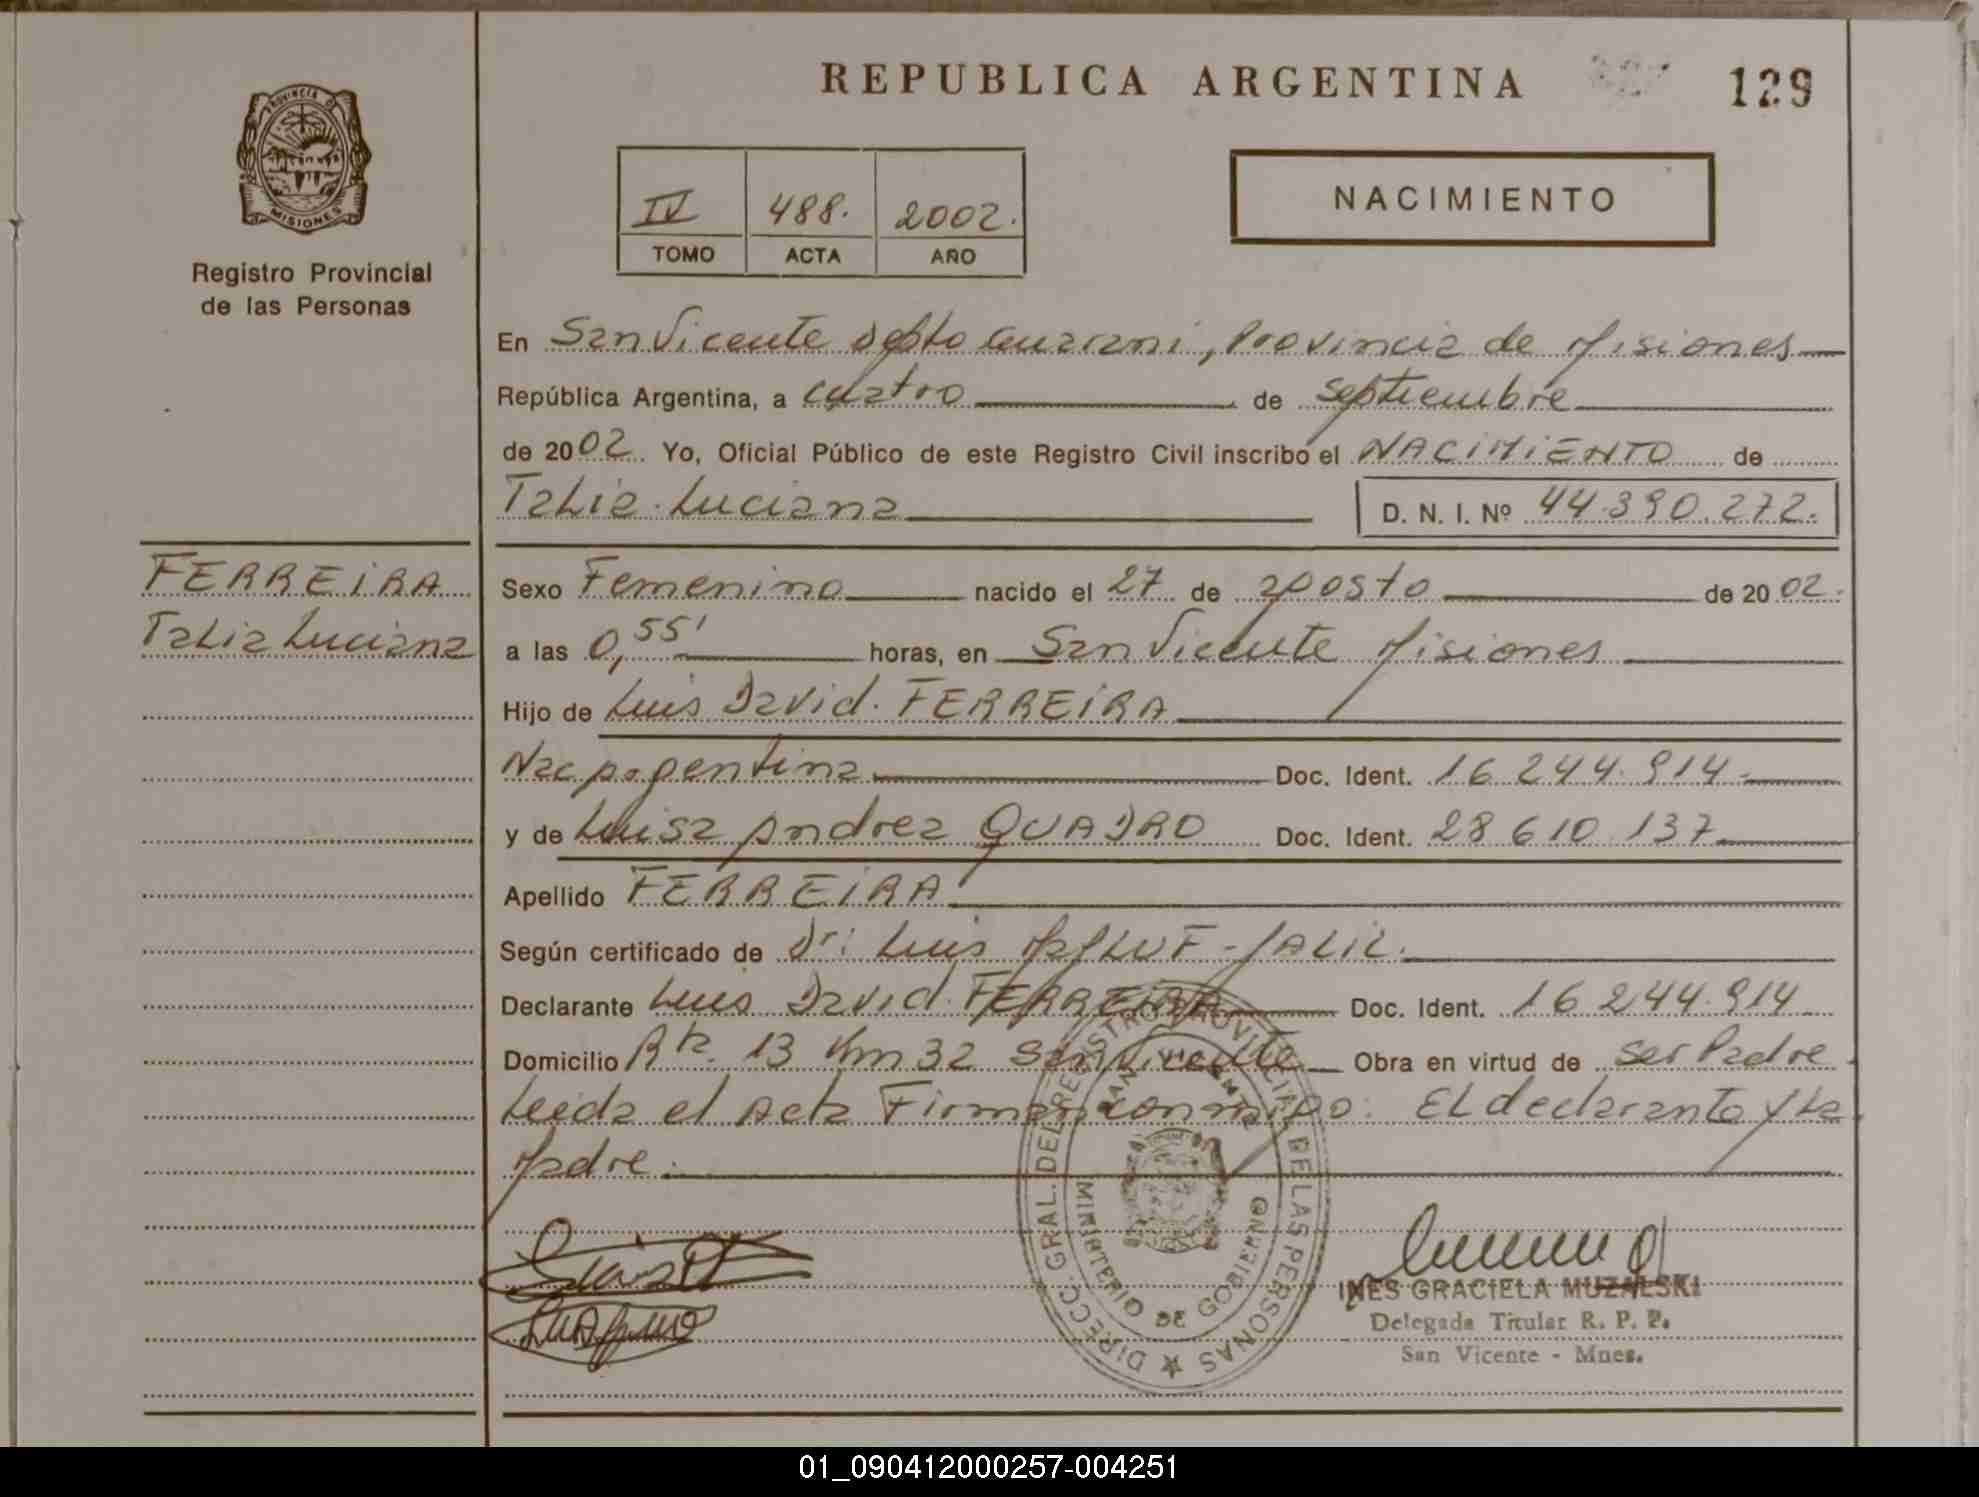 REPUBLICA ARGENTINA
129
PROVINCIA DE
MISIONES
Registro Provincial
de las Personas
IV 488. 2002.
TOMO ACTA AÑO
NACIMIENTO
En San Vicente Depto Guarani, Provincia de Misiones
República Argentina, a cuatro de septiembre
de 2002. Yo, Oficial Público de este Registro Civil inscribo el NACIMIENTO de
Talia Luciana D. N. I. Nº 44.390.272.
FERREIRA
Talia Luciana
Sexo Femenino nacido el 27 de agosto de 2002.
a las 0,55' horas, en San Vicente Misiones
Hijo de Luis David. FERREIRA
Nac Argentina Doc. Ident. 16.244.914.
y de Luisa Andrea QUADRO Doc. Ident. 28.610.137
Apellido FERREIRA
Según certificado de Dr: Luis JALIL.
Declarante Luis David. FERREIRA Doc. Ident. 16.244.914
Domicilio Rta. 13 Km 32 San Vicente Obra en virtud de ser Padre.
Leida el Acta Firman conmigo: El declarante y La
Madre.
DIRECC. GRAL. DEL REGISTRO PROVINCIAL DE LAS PERSONAS
SAN VICENTE
MINISTERIO DE GOBIERNO
INES GRACIELA MUZALSKI
Delegada Titular R. P. P.
San Vicente - Mnes.
01_090412000257-004251